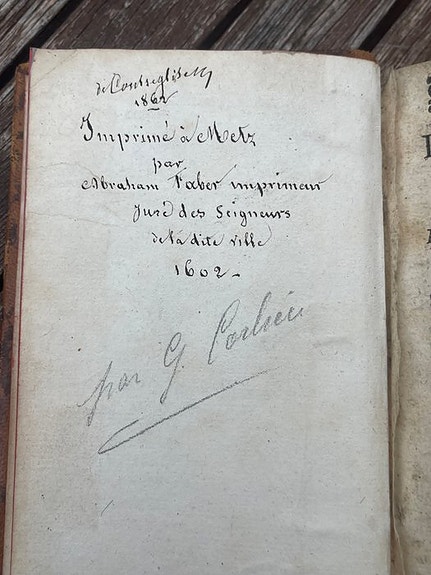 1862
Imprimé à Metz
par
Abraham Faber imprimeur
Juré des Seigneurs
de la dite ville
1602 -
par G.